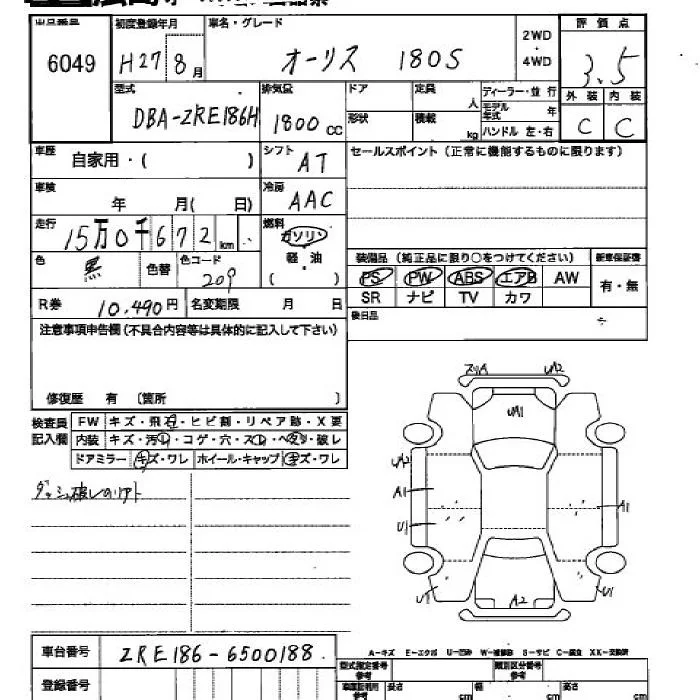 出品番号 初度登録年月 車名・グレード 2WD・4WD 評価点
6049 H27 8月 オーリス 180S 3.5
型式 DBA-ZRE186H 排気量 1800 cc ドア 定員 人 ディーラー・並行 外装 内装
形状 積載 kg モデル年式 年 ハンドル 左・右 C C
車歴 自家用・( ) シフト AT セールスポイント(正常に機能するものに限ります)
車検 年 月( 日) 冷房 AAC
走行 15万0千672km 燃料 ガソリン
色 黒 色替 色コード 209 軽・油 ( )
装備品(純正品に限り○をつけてください) 新車保証書
PS PW ABS エアB AW 有・無
SR ナビ TV カワ
R券 10,490円 名変期限 月 日 後日品
注意事項申告欄(不具合内容等は具体的に記入して下さい)
修復歴 有 〔箇所 〕
検査員記入欄 FW キズ・飛石・ヒビ割・リペア跡・X要
内装 キズ・汚レ・コゲ・穴・スレ・ヘタリ・破レ
ドアミラー キズ・ワレ ホイール・キャップ キズ・ワレ
スリA U2
U1
A1 A1
U1
U1 A2 U1
車台番号 ZRE186-6500188
A-キズ E-エクボ U-凹み W-補修跡 S-サビ C-腐食 XX-交換済
登録番号
型式指定番号 類別区分番号
長さ cm 幅 cm 高さ cm